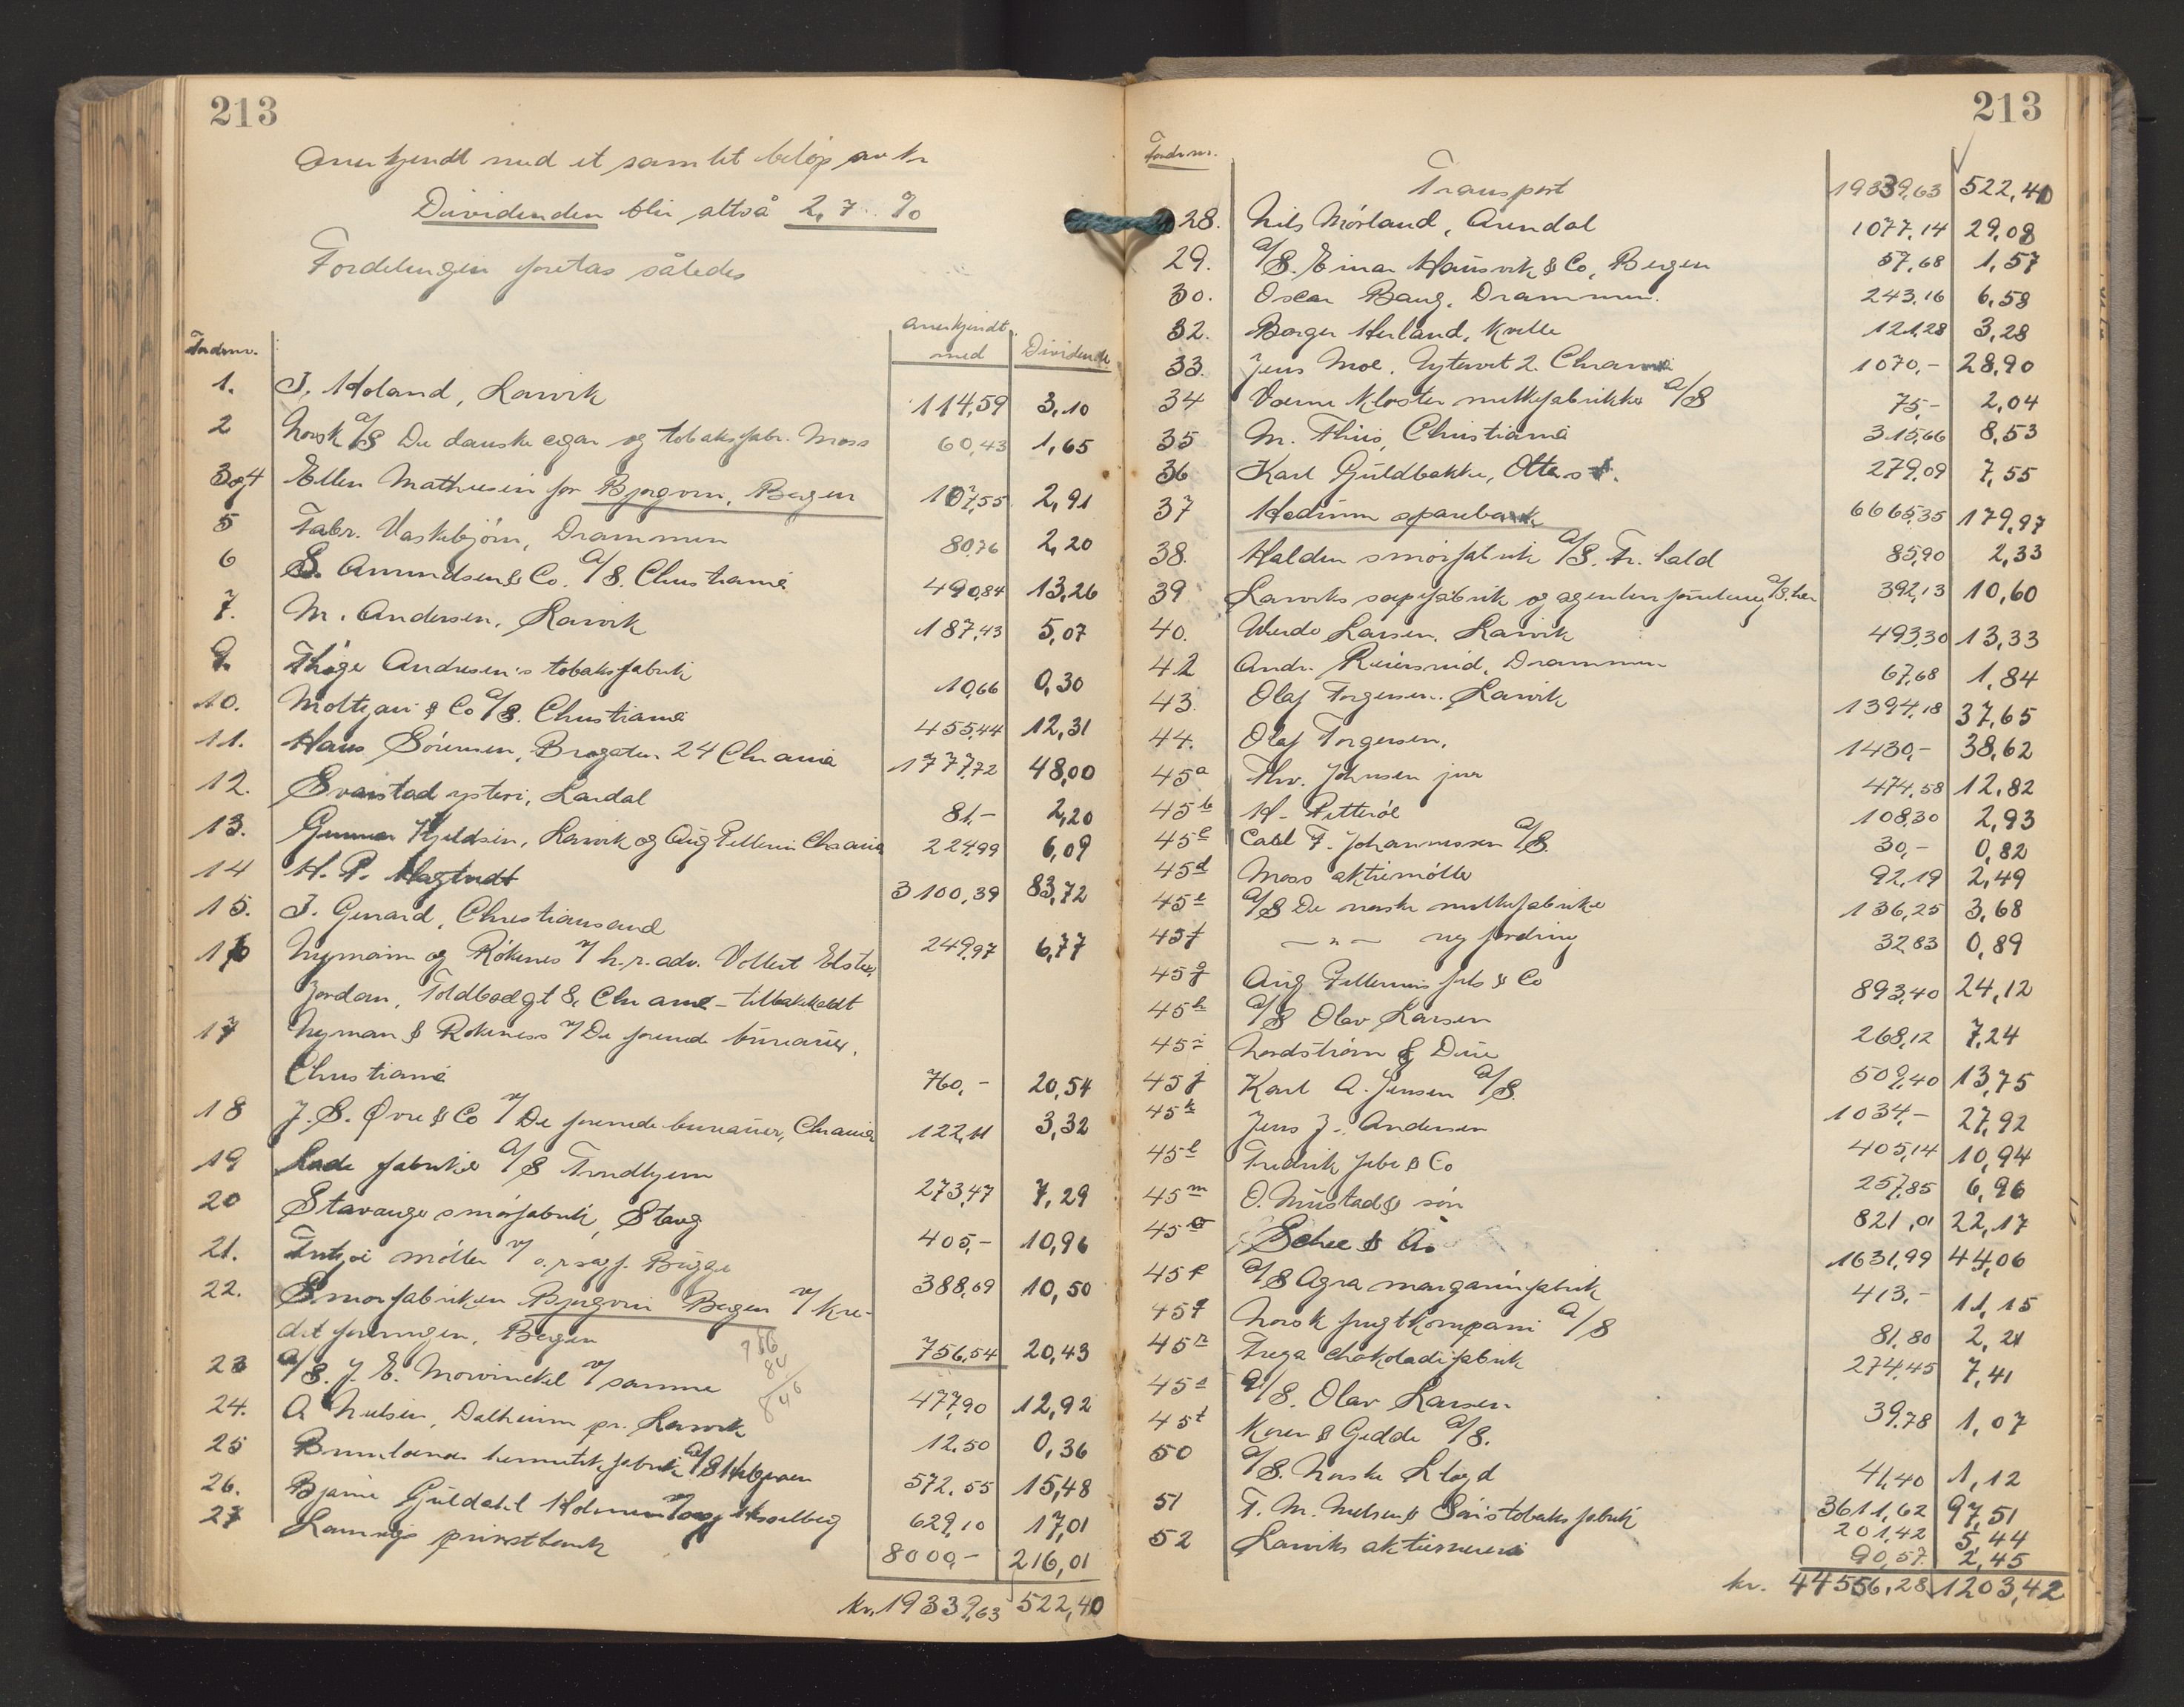 213
anerkjendt med et samlet beløp av kr
Dividenden blir altså 2,7 %
Fordelingen foretas således
Fordr.nr. anerkjendt med Dividende
1. J. Holand, Larvik 114,59 3,10
2 Norsk A/S De danske cigar og tobaksfabr. Moss 60,43 1,65
3 og 4 Ellen Mathiesen for Bjørgvin, Bergen 107,55 2,91
5 Fabr. Vaskebjørn, Drammen 80,76 2,20
6 S. Amundsen & Co. A/S. Christiania 490,84 13,26
7. M. Andersen, Larvik 187,43 5,07
9. Thøger Andresen's tobaksfabrik 10,66 0,30
10. Moltzau & Co A/S. Christiania 455,44 12,31
11. Hans Sørensen, Brogaten 24 Chr ania 1777,72 48,00
12. Svarstad ysteri, Lardal 81,- 2,20
13. Gunnar Kjeldsen, Larvik og Aug Pellerin Chr ania 224,99 6,09
14 H. P. 3100,39 83,72
15. J. Gerrard, Christiansand 249,97 6,77
16 Nymann og Røkenes v/ h.r.adv. Vollert Elster
Jordan, Toldbodgt 8, Chr ania - tilbakekaldt
17 Nyman & Røkeness v/ De forenede bureauer,
Christiania 760,- 20,54
18 J. S. Øvre & Co v/ De forenede bureauer, Chr ania 122,11 3,32
19 Lade fabrikker A/S Trondhjem 273,47 7,29
20 Stavanger smørfabrik, Stavg 405,- 10,96
21. møller v/ o.r.sagf. Bugge 388,69 10,50
22. Smørfabrikken Bjørgvin Bergen v/ Kre-
ditforeningen, Bergen 756,54 20,43
23 A/S. J. E. Mowinckel v/ samme 477,90 12,92
24. A Nielsen, Dalheim pr. Larvik 12,50 0,36
25 hermetikfabrik A/S 572,55 15,48
26. Bjarne Guldahl Holmen 629,10 17,01
27 Larviks privatbank 8000,- 216,01
kr. 19339,63 522,40
756
84
840
213
Fordr.nr.
Transport 19339,63 522,40
28. Nils Mørland, Arendal 1077,14 29,08
29. A/S. Einar Hausvik & Co, Bergen 57,68 1,57
30. Oscar Baug, Drammen. 243,16 6,58
32. Borger Herland, Kvelle 121,28 3,28
33. Jens Moe, 2. Chr ania 1070,- 28,90
34 Værne Kloster melkefabrikker A/S 75,- 2,04
35 M. Thiis, Christiania 315,66 8,53
36 Karl Guldbakke, 279,09 7,55
37 Hedrum sparebank 6665,35 179,97
38. Halden smørfabrik A/S. Fr. hald 85,90 2,33
39 Larviks såpefabrik og agenturforretning A/S. her 392,13 10,60
40. Larsen, Larvik 493,30 13,33
42 Andr. Drammen 67,68 1,84
43. Olaf Torgersen. Larvik 1394,18 37,65
44. Olaf Torgersen, 1430,- 38,62
45a Thv. Johnsen jun 474,58 12,82
45b H. Petterøe 108,30 2,93
45c Carl F. Johannessen A/S. 30,- 0,82
45d Moss aktiemølle 92,19 2,49
45e A/S De norske melkefabriker 136,25 3,68
45f — " — ny fordring 32,83 0,89
45g Aug Pellerins fils & Co 893,40 24,12
45h A/S Olav Larsen 268,12 7,24
45i Nordstrøm & Due 509,40 13,75
45j Karl A. Jensen A/S. 1034,- 27,92
45k Jens J. Andersen 405,14 10,94
45l Fredrik Jebe & Co 257,85 6,96
45m O. Mustad & søn 821,01 22,17
45o & Ås 1631,99 44,06
45p A/S Agra margarinfabrik 413,- 11,15
45q Norsk frugtkompani A/S 81,80 2,21
45r Freya chokoladefabrik 274,45 7,41
45s A/S. Olav Larsen 39,78 1,07
45t Koren & Gedde A/S.
50 A/S. Norske Lloyd 41,40 1,12
51 F. M. Nielsen & Søns tobaksfabrik 3611,62 97,51
52 Larviks aktiemeieri 201,42 5,44
90,57 2,45
kr. 44556,28 1203,42